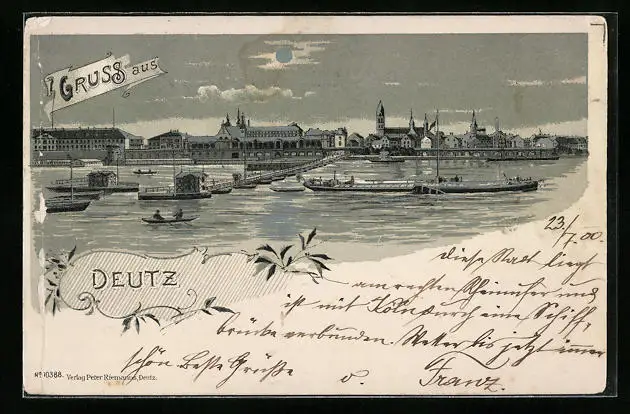 Gruss aus
DEUTZ
23/7.00
diese Stadt liegt
am rechten Rheinufer und
ist mit Köln durch eine Schiff,
brücke verbunden. Wetter bis jetzt immer
schön. Beste Grüße
v. Franz.
No 10388. Verlag Peter Riemanns, Deutz.